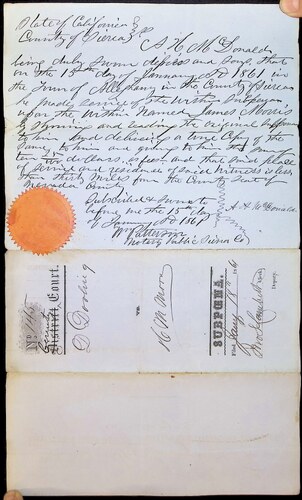 State of California }
County of Sierra } ss
A. H. McDonald
being duly sworn deposes and says that
on the 13th day of January AD 1861 in
the Town of Alleghany in the County of Sierra
he made service of the within Subpoena
upon the within Named James Morris
by Showing and reading the original
and delivering a true Copy of the
Same to him and giving to him the sum
two dollars, as fees and that said place
of service and residence of said witness is less
than thirty Miles from the County Seat of
Nevada County
Subscribed & Sworn to
before me the 15th day
of January AD 1861
A. H. McDonald
Wm Patterson
Notary Public Sierra Co
No 1165
County
District Court.
D Dooling
vs
H M Moore
SUBPŒNA.
Filed Jany 18th 1861
Clerk,
Deputy.